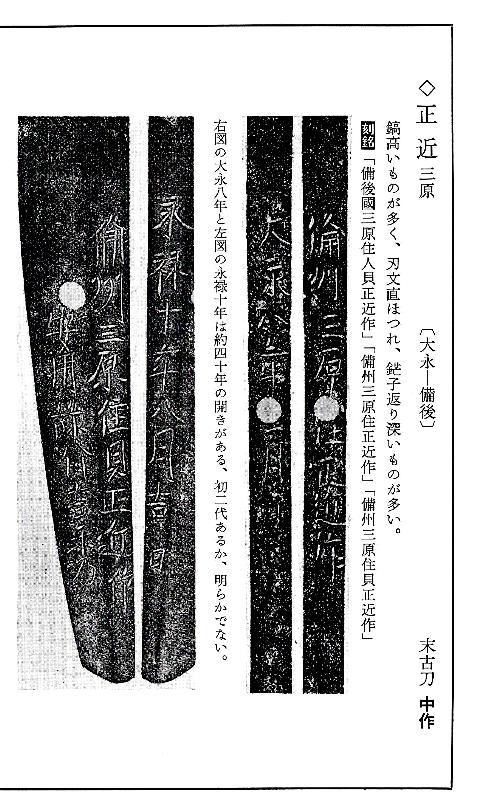 ◇正近 三原 〔大永―備後〕 末古刀 中作
鎬高いものが多く、刃文直ほつれ、鋩子返り深いものが多い。
刻銘「備後國三原住人貝正近作」「備州三原住正近作」「備州三原住貝正近作」
備州三原住正近作
大永八年二月
右図の大永八年と左図の永禄十年は約四十年の開きがある、初二代あるか、明らかでない。
永禄十年八月吉日
備州三原住貝正近作